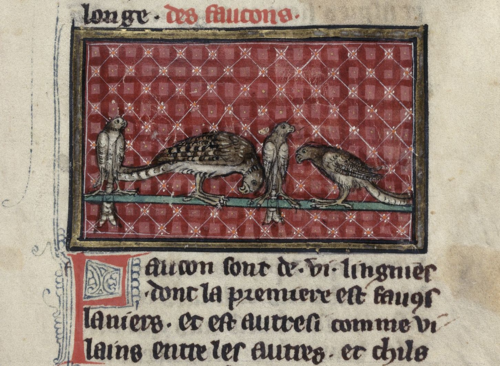 longe · des faucons ·
Faucon sont de · vi · lingnies
· dont la premiere est faus
laniers · et est autresi comme vi
lains entre les autres · et chils